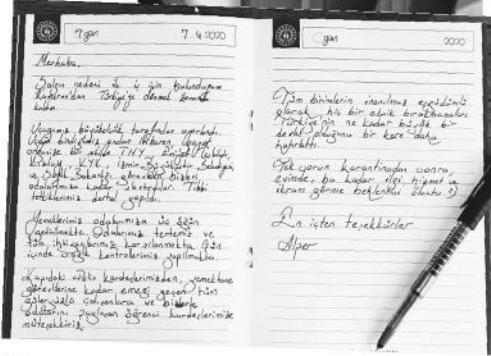 7. gün 7.4.2020
Merhaba,
Salgın nedeni ile iş için bulunduğum
Türkiye'ye dönmek zorunda
kaldım.
Uçağımız büyükelçilik tarafından ayarlandı.
Uçağa bindiğimiz andan itibaren
organize bir şekilde
Kızılay, KYK, İzmir Büyükşehir
ve Sağlık Bakanlığı görevlileri bizleri
odalarımıza kadar Tıbbi
tetkiklerimiz derhal yapıldı.
Yemeklerimiz odalarımıza üç öğün
getirilmekte. Odalarımız tertemiz ve
tüm ihtiyaçlarımız karşılanmakta. Gün
içinde sağlık kontrollerimiz yapılmakta.
Kapıdaki polis kardeşlerimizden, yemekhane
görevlilerine kadar emeği geçen tüm
çalışanlara ve bizlerle
odalarını paylaşan öğrenci kardeşlerimize
müteşekkiriz.
gün 2020
Tüm birimlerin inanılmaz eşgüdümlü
olarak, hiç bir eksik bırakmamaları
Türkiye'nin ne kadar büyük bir
devlet olduğunu bir kere daha
hatırlattı.
Tek sorun karantinadan sonra
evimde, bu kadar ilgi, hizmet ve
ikram görme beklentisi oluştu :)
En içten teşekkürler
Alper